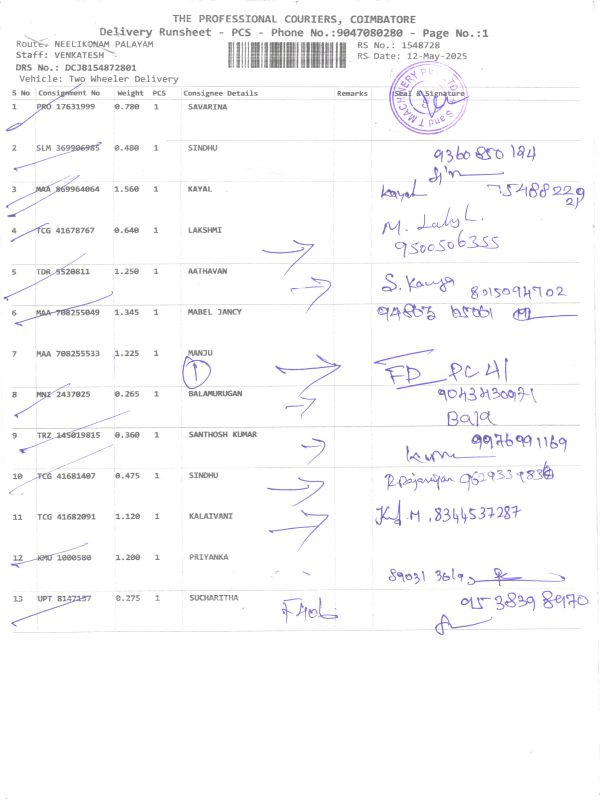 THE PROFESSIONAL COURIERS, COIMBATORE
Delivery Runsheet - PCS - Phone No.:9047080280 - Page No.:1
Route: NEELIKONAM PALAYAM
Staff: VENKATESH
DRS No.: DCJB154872801
Vehicle: Two Wheeler Delivery
RS No.: 1548728
RS Date: 12-May-2025
S No Consignment No Weight PCS Consignee Details Remarks Seal & Signature
1 PRO 17631999 0.780 1 SAVARINA
2 SLM 369906985 0.480 1 SINDHU 9360850194
3 MAA 869964064 1.560 1 KAYAL Kayal
4 TCG 41678767 0.640 1 LAKSHMI M.
9500506355
5 TDR 5520811 1.250 1 AATHAVAN S. Kavya 8015094702
6 MAA 708255049 1.345 1 MABEL JANCY
7 MAA 708255533 1.225 1 MANJU
1 FD PC 41
8 MNI 2437025 0.265 1 BALAMURUGAN
Bala
9 TRZ 145019815 0.360 1 SANTHOSH KUMAR 9976991169
10 TCG 41681407 0.475 1 SINDHU
11 TCG 41682091 1.120 1 KALAIVANI 8344537287
12 KMU 1000580 1.200 1 PRIYANKA
13 UPT 8147137 0.275 1 SUCHARITHA 9538398970